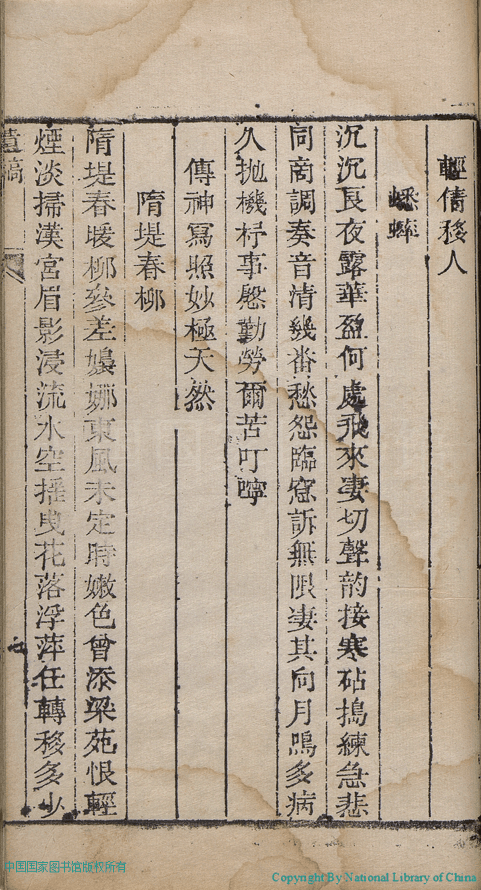 輕倩移人
蟋蟀
沉沉長夜露華盈何處飛來凄切聲韵接寒砧搗練急悲
同商調奏音清幾番愁怨臨窓訴無限凄其向月鳴多病
久抛機杼事慇勤勞爾苦叮嚀
傳神寫照妙極天然
隋堤春柳
隋堤春暖柳參差嬝娜東風未定時嫩色曾添梁苑恨輕
煙淡掃漢宮眉影浸流水空摇曳花落浮萍任轉移多少
遺稿
七
中国国家图书馆版权所有
Copyright By National Library of China